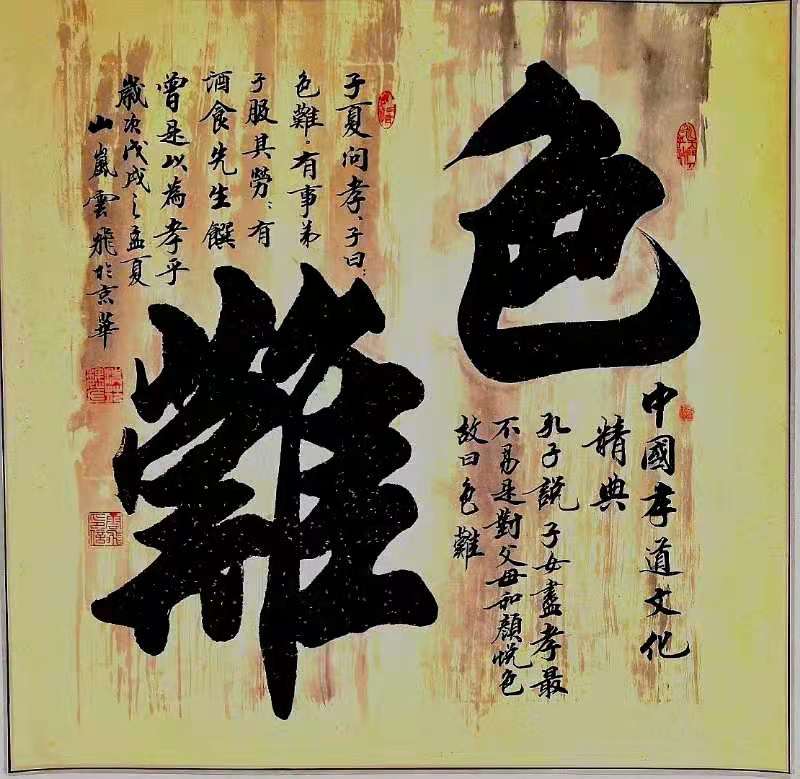 色
難
中國孝道文化
精典
孔子說子女盡孝最
不易是對父母和顏悅色
故曰色難
子夏问孝、子曰:
色難、有事弟
子服其勞、有
酒食先生饌
曾是以為孝乎
歲次戊戌之孟夏
山嵐雲飛於京華